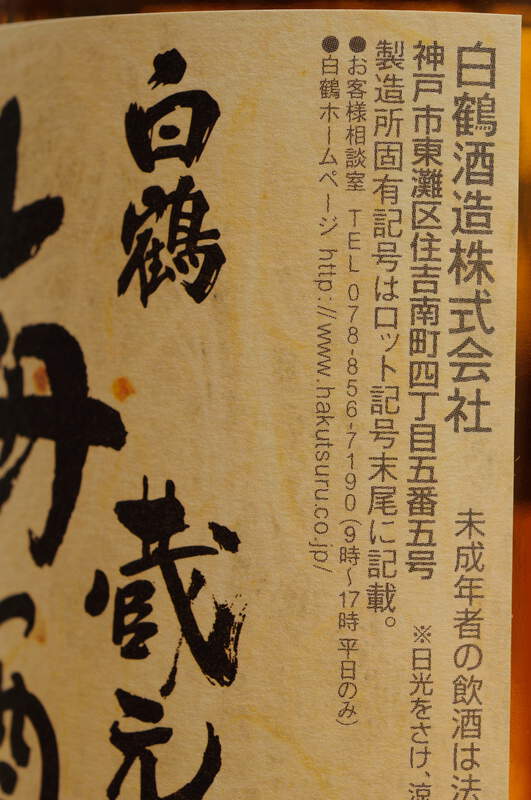 白鶴酒造株式会社
未成年者の飲酒は法
神戸市東灘区住吉南町四丁目五番五号
※日光をさけ、涼
製造所固有記号はロット記号末尾に記載。
●お客様相談室 TEL 078-856-7190(9時〜17時 平日のみ)
●白鶴ホームページ http://www.hakutsuru.co.jp/
白鶴
蔵元